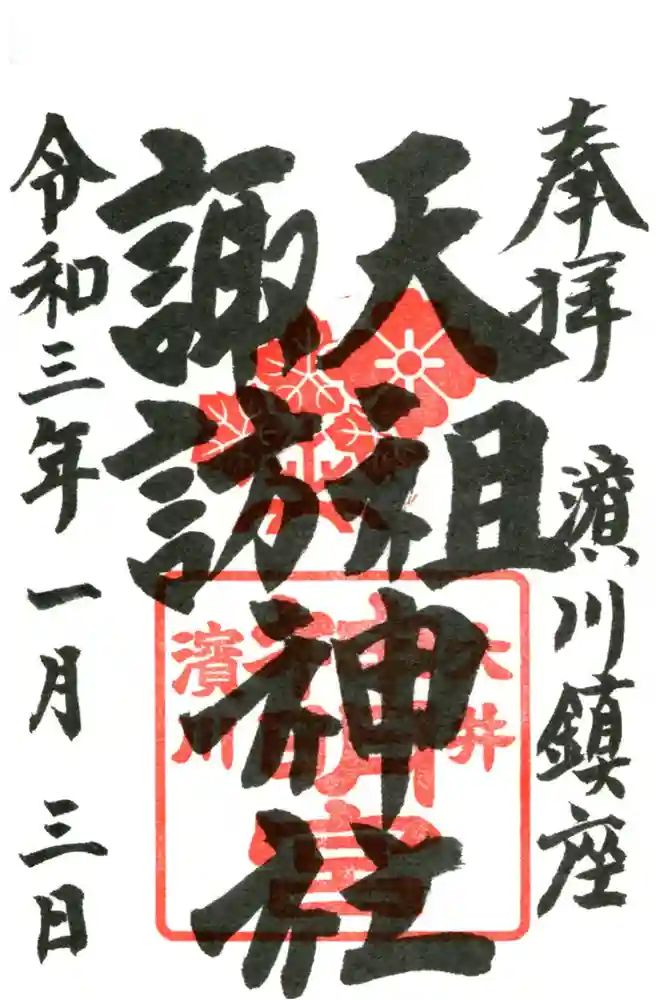 奉拝 濱川鎮座
天祖
諏訪
神社
令和三年一月三日
大井
濱川